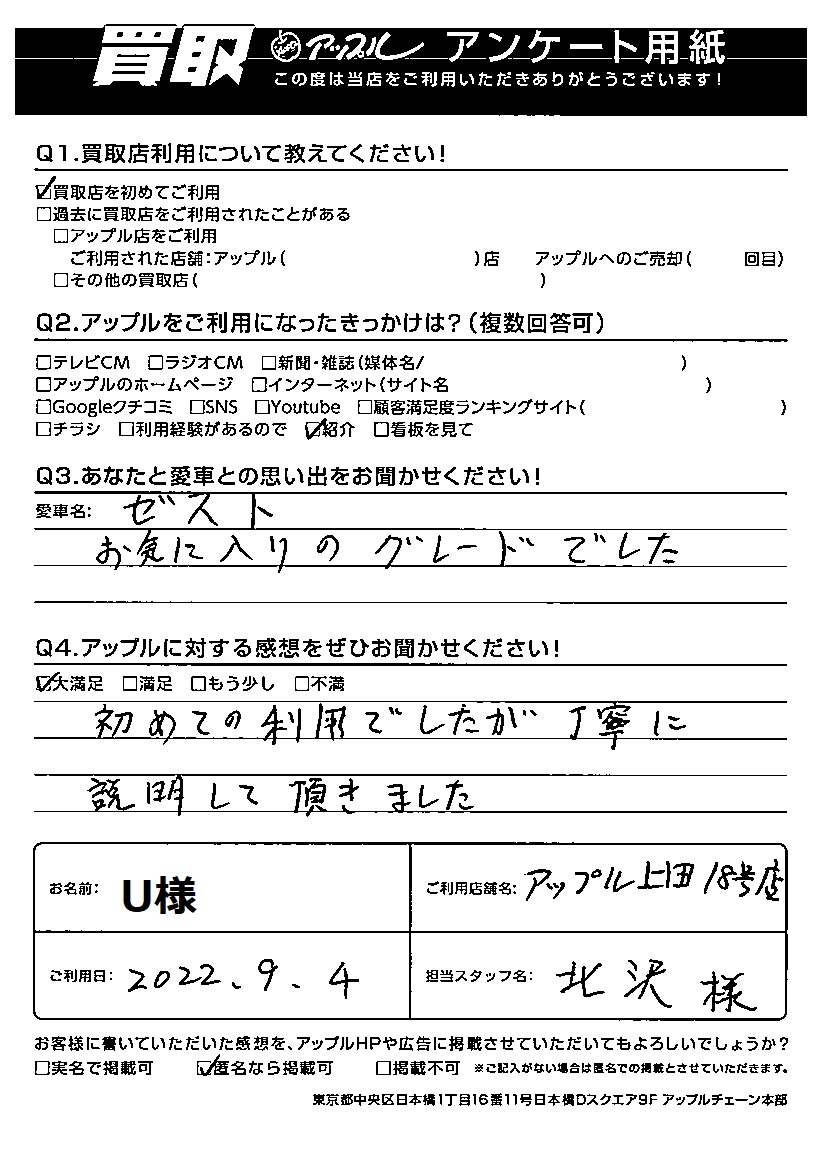 買取 アップル アンケート用紙
この度は当店をご利用いただきありがとうございます!
Q1.買取店利用について教えてください!
☑買取店を初めてご利用
□過去に買取店をご利用されたことがある
□アップル店をご利用
ご利用された店舗:アップル( )店 アップルへのご売却( 回目)
□その他の買取店( )
Q2.アップルをご利用になったきっかけは?(複数回答可)
□テレビCM □ラジオCM □新聞・雑誌(媒体名/ )
□アップルのホームページ □インターネット(サイト名 )
□Googleクチコミ □SNS □Youtube □顧客満足度ランキングサイト( )
□チラシ □利用経験があるので ☑紹介 □看板を見て
Q3.あなたと愛車との思い出をお聞かせください!
愛車名: ゼスト
お気に入りのグレードでした
Q4.アップルに対する感想をぜひお聞かせください!
☑大満足 □満足 □もう少し □不満
初めての利用でしたが丁寧に
説明して頂きました
お名前: U様 ご利用店舗名: アップル上田18号店
ご利用日: 2022.9.4 担当スタッフ名: 北沢様
お客様に書いていただいた感想を、アップルHPや広告に掲載させていただいてもよろしいでしょうか?
□実名で掲載可 ☑匿名なら掲載可 □掲載不可 ※ご記入がない場合は匿名での掲載とさせていただきます。
東京都中央区日本橋1丁目16番11号日本橋Dスクエア9F アップルチェーン本部